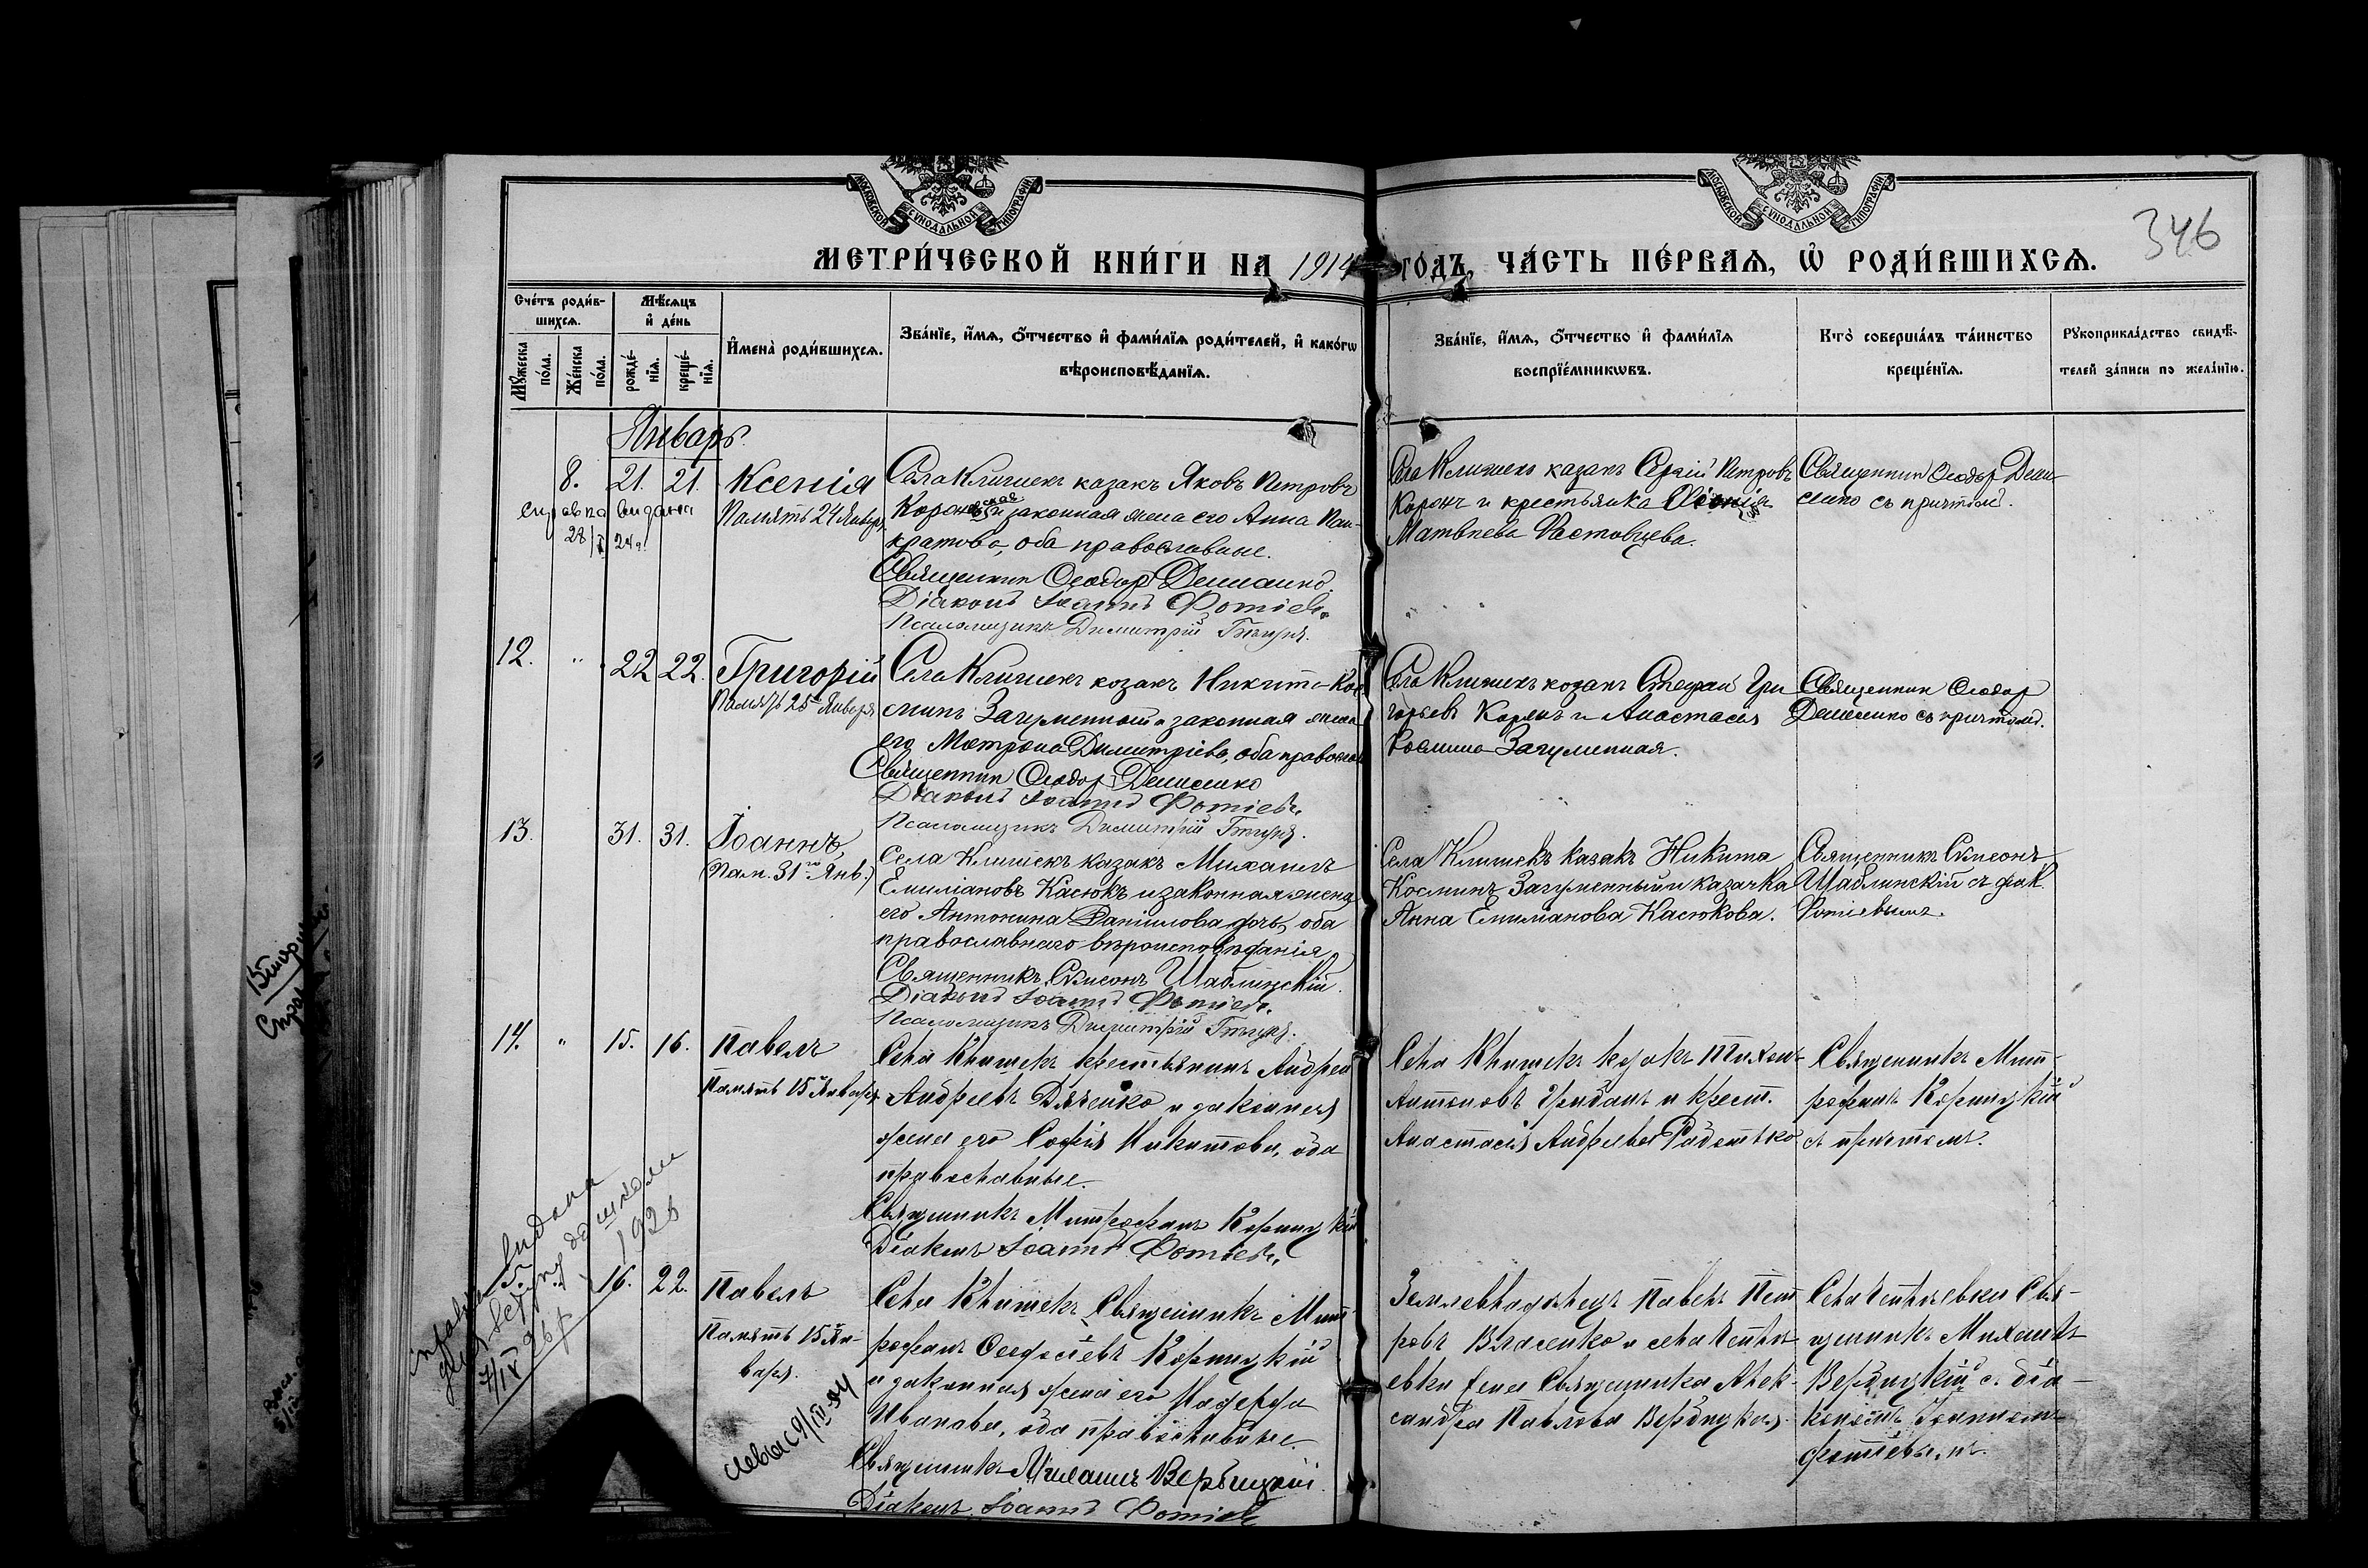 МОСКОВСКОЙ СѴНОДАЛЬНОЙ ТИПОГРАФІИ
МОСКОВСКОЙ СѴНОДАЛЬНОЙ ТИПОГРАФІИ
346
МЕТРИ́ЧЕСКОЙ КНИ́ГИ НА 1914 ГОДЪ, ЧА́СТЬ ПЕ́РВАѦ, Ѡ҆ РОДИ́ВШИХСѦ.
Сче́тъ роди́в-
шихсѧ.
Мꙋ́жеска по́ла.
Же́нска по́ла.
Мѣ́сѧцъ
и҆ де́нь
рожде́-
нїѧ.
креще́-
нїѧ.
И҆мена̀ роди́вшихсѧ.
Зва́нїе, и҆́мѧ, ѻ҆́тчество и҆ фами́лїѧ роди́телей, и҆ како́гѡ
вѣроисповѣ́данїѧ.
Зва́нїе, и҆́мѧ, ѻ҆́тчество и҆ фами́лїѧ
воспрїе́мникѡвъ.
Кто̀ соверша́лъ та́инство
креще́нїѧ.
Рꙋкоприкла́дство свидѣ́-
телей за́писи по жела́нїю.
Январь.
8. 21. 21. Ксенія
Память 24 Января
справка видана
28/I 24 г.
Села Клишекъ казакъ Яковъ Петровъ
Корон и законная жена его Анна Пан-
кратова, оба православные.
Священник Ѳеодор Денисенко.
Діаконъ Іоаннъ Фотіевъ.
Псаломщикъ Димитрій
Села Клишекъ казакъ Сергій Петровъ
Коронъ и крестьянка
Матвѣева Растовцева.
Священник Ѳеодор Дени-
сенко съ причтом.
12. " 22 22. Григорій
Память 25 Января
Села Клишекъ козакъ Никита Кос-
минъ Загуменный и законная жена
его Матрона Димитріева, оба правосл
Священник Ѳеодор Денисенко
Діаконъ Іоаннъ Фотіевъ.
Псаломщикъ Димитрій
Села Клишекъ козакъ Стефан Гри
горьевъ и Анастасія
Космина Загуменная.
Священник Ѳеодор
Денисенко съ причтомъ.
13. 31. 31. Іоаннъ
(Пам. 31го Янв.)
Села Клишекъ казакъ Михаилъ
Емиліановъ Касюкъ и законная жена
его Антонина Даніилова дочь, оба
православнаго вѣроисповѣданія
Священникъ Сѵмеонъ Шаблинскій.
Діаконъ Іоаннъ Фотіевъ.
Псаломщикъ Димитрій
Села Клишекъ казакъ Никита
Косминъ Загуменный и казачка
Анна Емилианова Касюкова.
Священникъ Сѵмеонъ
Шаблинскій съ діак.
Фотіевымъ.
14. " 15. 16. Павелъ
Память 15 Января
Села Клишекъ крестьянинъ Андрей
Андреевъ Дяченко и законная
жена его Софія Никитова, оба
православные.
Священникъ Митрофанъ Корницкій
Діаконъ Іоаннъ Фотіевъ.
Села Клишекъ козакъ Тихонъ
Антоновъ и крест.
Анастасія Андреева
Священникъ Мит-
рофанъ Корницкій
съ причтомъ.
видана
до школи
1926
7/IV 26 р
15. 16. 22. Павелъ
Память 15 Ян-
варя.
9/IV
Села Клишекъ Священникъ Мит-
рофанъ Ѳеодосіевъ Корницкій
и законная жена его Надежда
Иванова, оба православные.
Священникъ Михаилъ Вербицкій.
Діаконъ Іоаннъ Фотіевъ
Землевладѣлецъ Павелъ Пет
ровъ Власенко и села
евки жена Священника Алек-
сандра Павлова Вербицкая.
Села Свя-
щенникъ Михаилъ
Вербицкій съ діа-
кономъ Іоанномъ
Фотіевымъ.